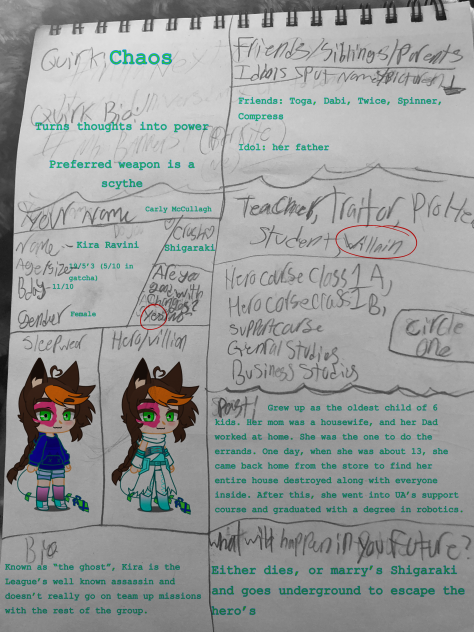 Quirk: Chaos
Quirk Bio:
Turns thoughts into power
Preferred weapon is a
scythe
Friends/Siblings/Parents
Idols put Name/picture
Friends: Toga, Dabi, Twice, Spinner,
Compress
Idol: her father
Your Name Carly McCullagh
Name ~ Kira Ravini
Age/size ~ 19/5'3 (5/10 in
gatcha)
Bday - 11/10
Gender Female
Crush
Shigaraki
Are you
good with
changes?
yes/no
Teacher, Traitor,
Student, Villain
Hero course Class 1A,
Hero corse class 1B,
support corse
General Studies
Business Studies
circle
one
Sleepwear
Hero/villian
Past/ Grew up as the oldest child of 6
kids. Her mom was a housewife, and her Dad
worked at home. She was the one to do the
errands. One day, when she was about 13, she
came back home from the store to find her
entire house destroyed along with everyone
inside. After this, she went into UA's support
course and graduated with a degree in robotics.
Bio
Known as "the ghost", Kira is the
League's well known assassin and
doesn't really go on team up missions
with the rest of the group.
what will happen in your future?
Either dies, or marry's Shigaraki
and goes underground to escape the
hero's